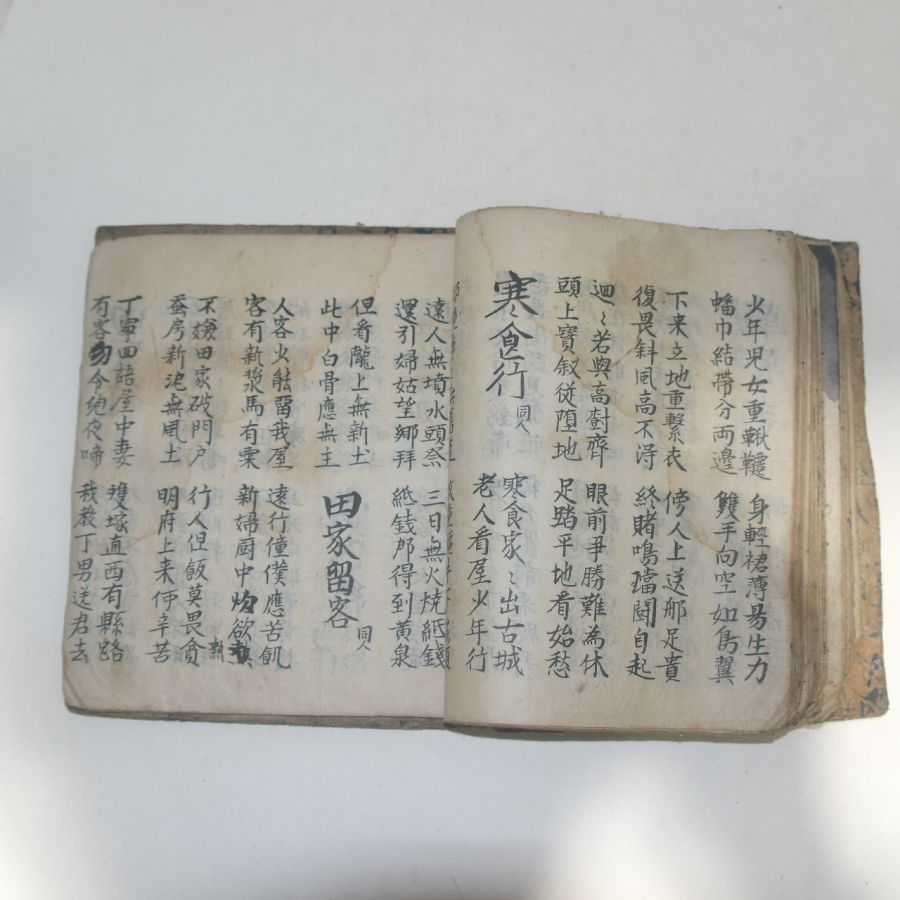 少年児女重鞦韆
蟠巾結帶分両邊
身輕裙薄易生力
雙手向空如鳥翼
下来立地重繫衣
復畏斜風高不淂
傍人上送那足貴
終賭鳴璫鬪自起
迴〻若與高樹齊
頭上寶釵従墮地
眼前爭勝難為休
足踏平地看始愁
寒食行 同人
寒食家〻出古城
老人看屋少年行
遠人無墳水頭祭
還引婦姑望鄉拜
三日無火燒紙錢
紙錢那得到黃泉
但看隴上無新土
此中白骨應無主
田家留客 同人
人客少能留我屋
客有新漿馬有粟
遠行僮僕應苦飢
新婦厨中炊欲熟
不嫌田家破門户
蚕房新泥無風土
行人但飯莫畏貧
明府上来何辛苦
丁寧回語屋中妻
有客勿令兒夜啼
雙塚直西有縣路
我教丁男送君去